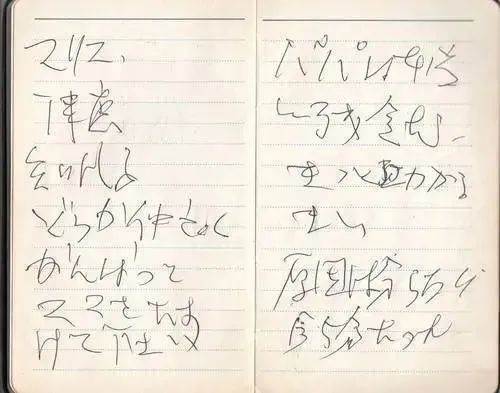 マリコ、
津慶
知代子
どうか仲良く
がんばって
ママをたす
けて下さい
パパは本当
に残念だ
きっと助かる
まい
原因は分らない
今5分たった